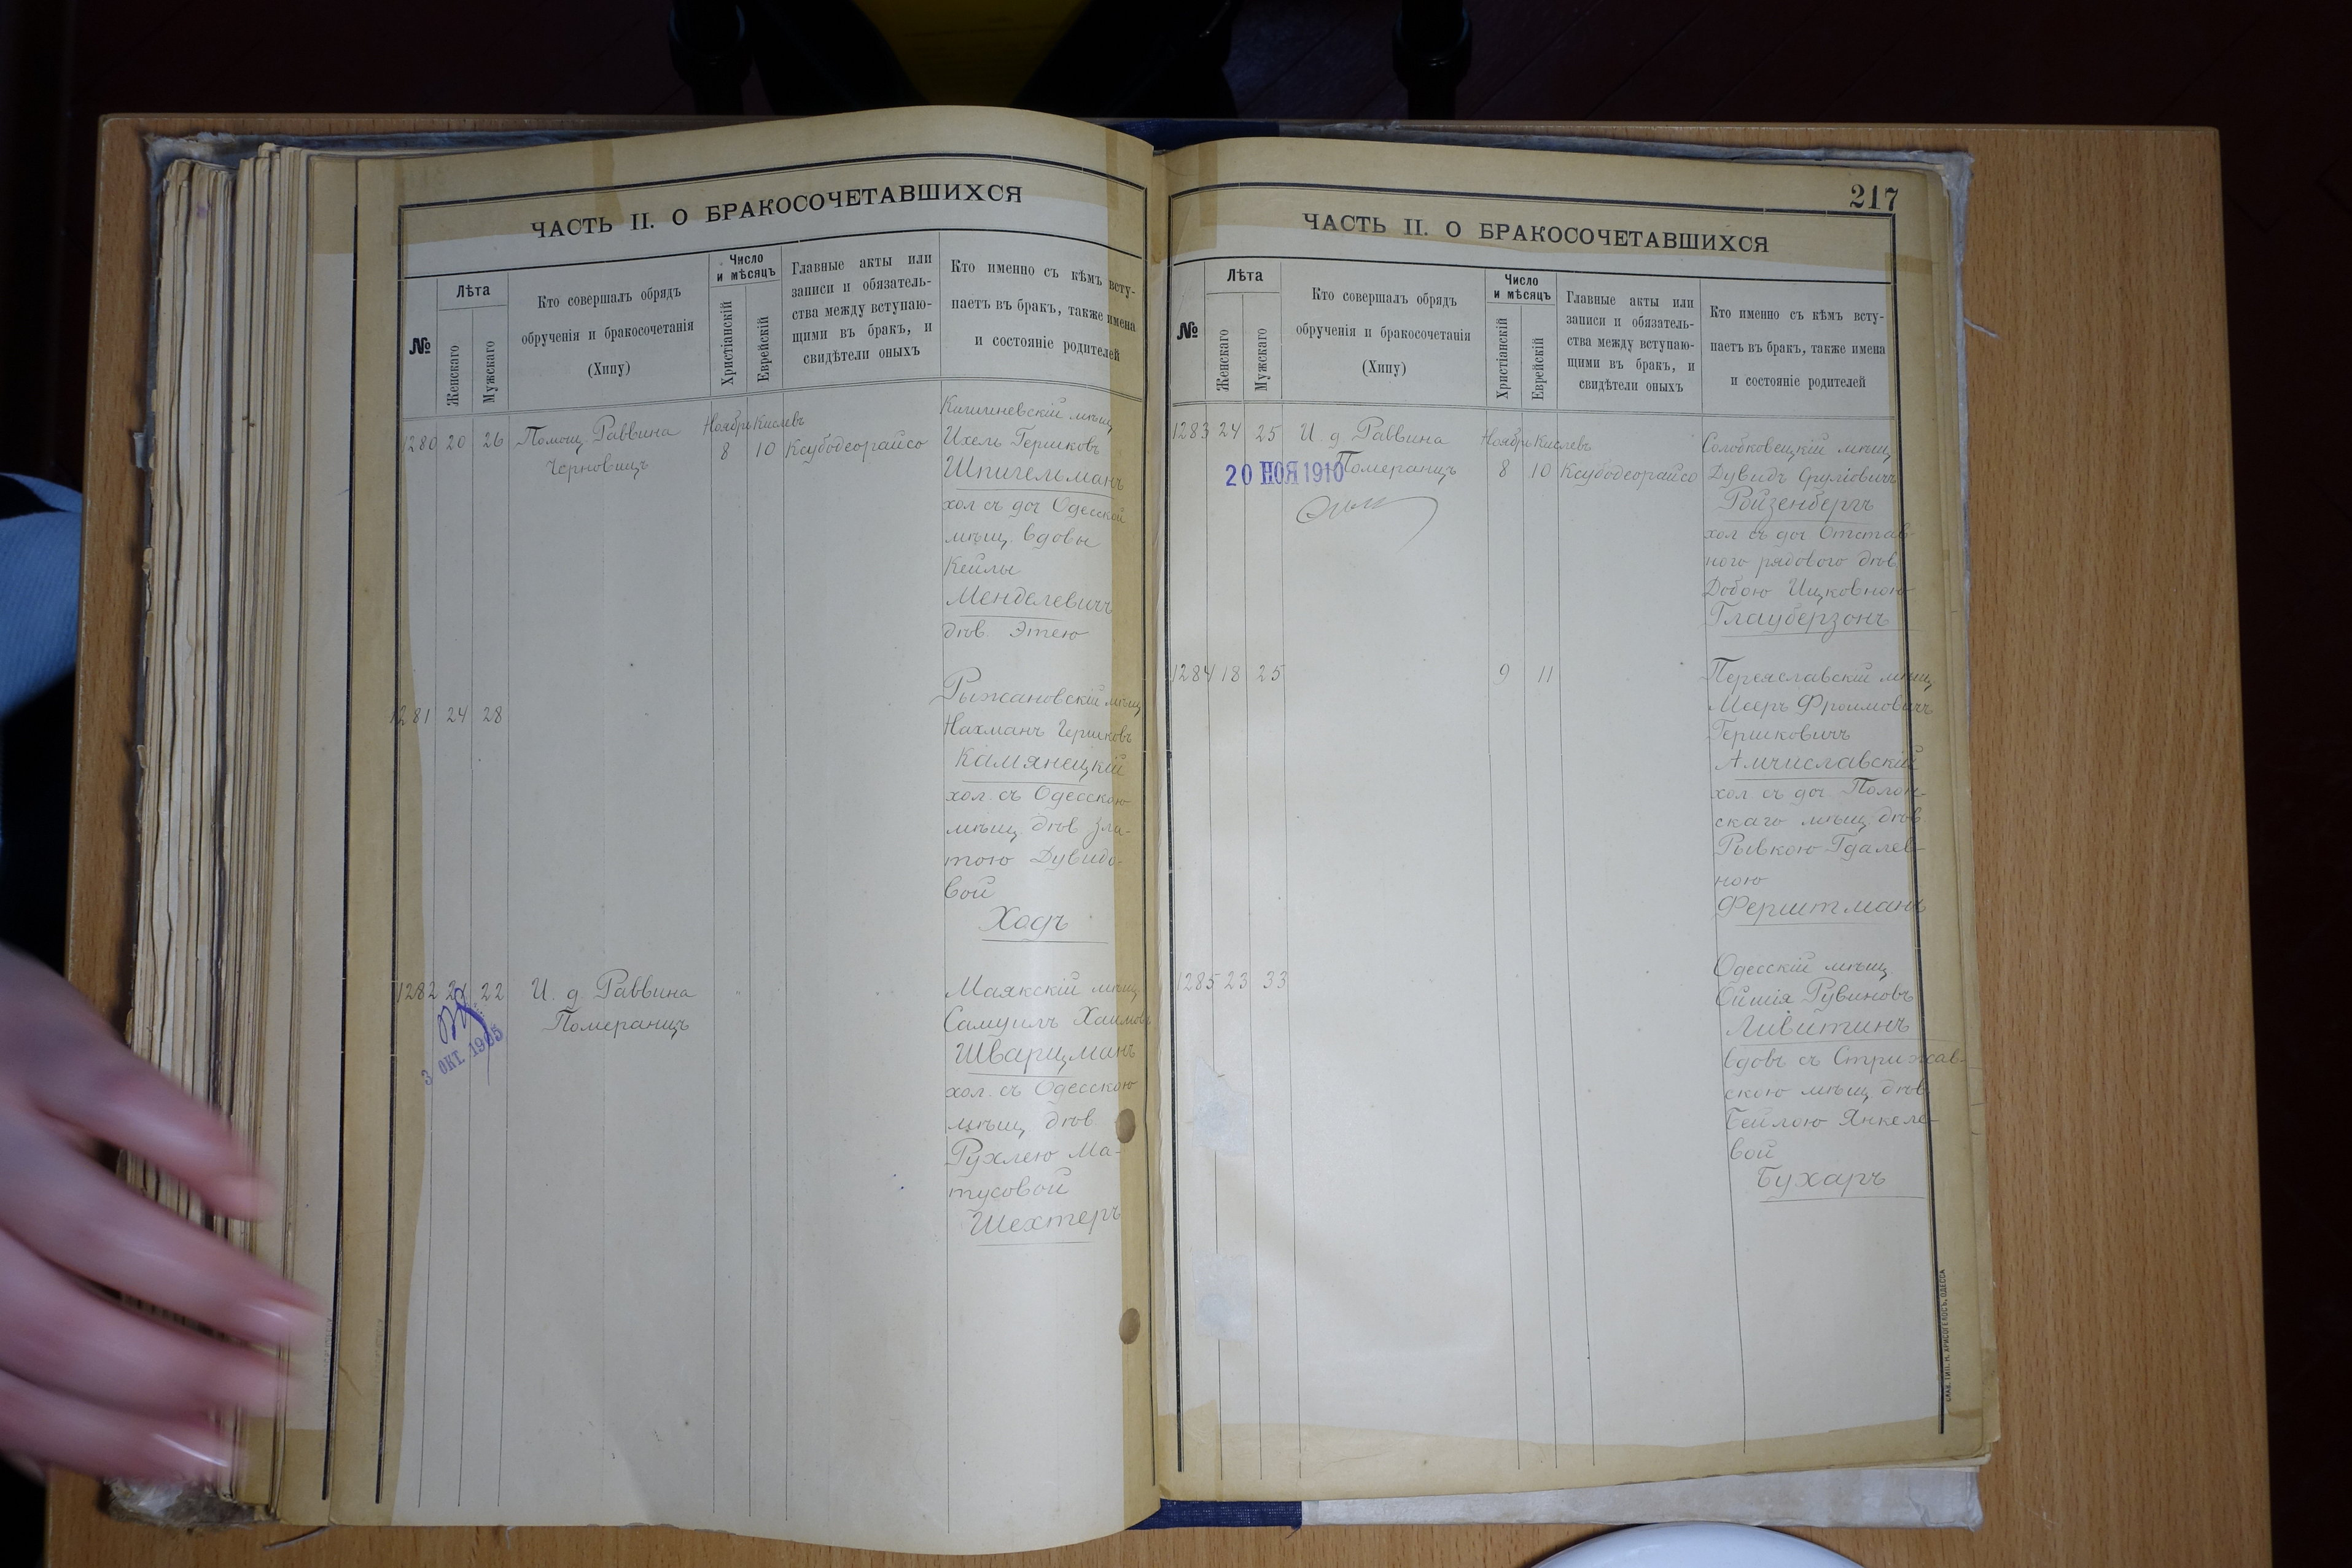 ЧАСТЬ II. О БРАКОСОЧЕТАВШИХСЯ
№
Лѣта
Женскаго
Мужскаго
Кто совершалъ обрядъ
обрученія и бракосочетанія
(Хипу)
Число
и мѣсяцъ
Христіанскій
Еврейскій
Главные акты или
записи и обязатель-
ства между вступаю-
щими въ бракъ, и
свидѣтели оныхъ
Кто именно съ кѣмъ всту-
паетъ въ бракъ, также имена
и состояніе родителей
1280 20 26 Помощ. Раввина
Черновицъ
Ноябрь Кислевъ
8 10 Ксубодеорайсо
Кишиневскій мѣщ
Ихель Гершковъ
Шпигельманъ
хол съ доч Одесской
мѣщ. вдовы
Кейлы
Менделевичъ
дѣв. Этею
1281 24 28
Рыжановскій мѣщ
Нахманъ Гершковъ
Камянецкій
хол. съ Одесскою
мѣщ. дѣв Зла-
тою Дувидо-
вой
Ходъ
1282 22 И. д Раввина
Померанцъ
3 ОКТ. 1905
Маякскій мѣщ
Самуилъ Хаимовъ
Шварцманъ
хол. съ Одесскою
мѣщ дѣв
Рухлею Ма-
тусовой
Шехтеръ
217
ЧАСТЬ II. О БРАКОСОЧЕТАВШИХСЯ
№
Лѣта
Женскаго
Мужскаго
Кто совершалъ обрядъ
обрученія и бракосочетанія
(Хипу)
Число
и мѣсяцъ
Христіанскій
Еврейскій
Главные акты или
записи и обязатель-
ства между вступаю-
щими въ бракъ, и
свидѣтели оныхъ
Кто именно съ кѣмъ всту-
паетъ въ бракъ, также имена
и состояніе родителей
1283 24 25 И. д Раввина
Померанцъ
20 НОЯ 1910
Ноябрь Кислевъ
8 10 Ксубодеорайсо
Солобковецкій мѣщ
Дувидъ Сруліовичъ
Ройзенбергъ
хол съ доч Отстав-
ного рядового дѣв
Добою Ицковною
Глауберзонъ
1284 18 25
9 11
Переяславскій мѣщ
Мееръ Фроимовичъ
Гершковичъ
Амчиславскій
хол съ доч Полон-
скаго мѣщ. дѣв
Рывкою Гдалев-
ною
Ферштманъ
1285 23 33
Одесскій мѣщ
Ойшія Рувиновъ
Ливитинъ
вдовъ съ Стрижав-
скою мѣщ дѣв
Бейлою Янкеле-
вой
Бухаръ
СЛАВ. ТИП. Н. ХРИСОГЕЛОСЪ, ОДЕССА